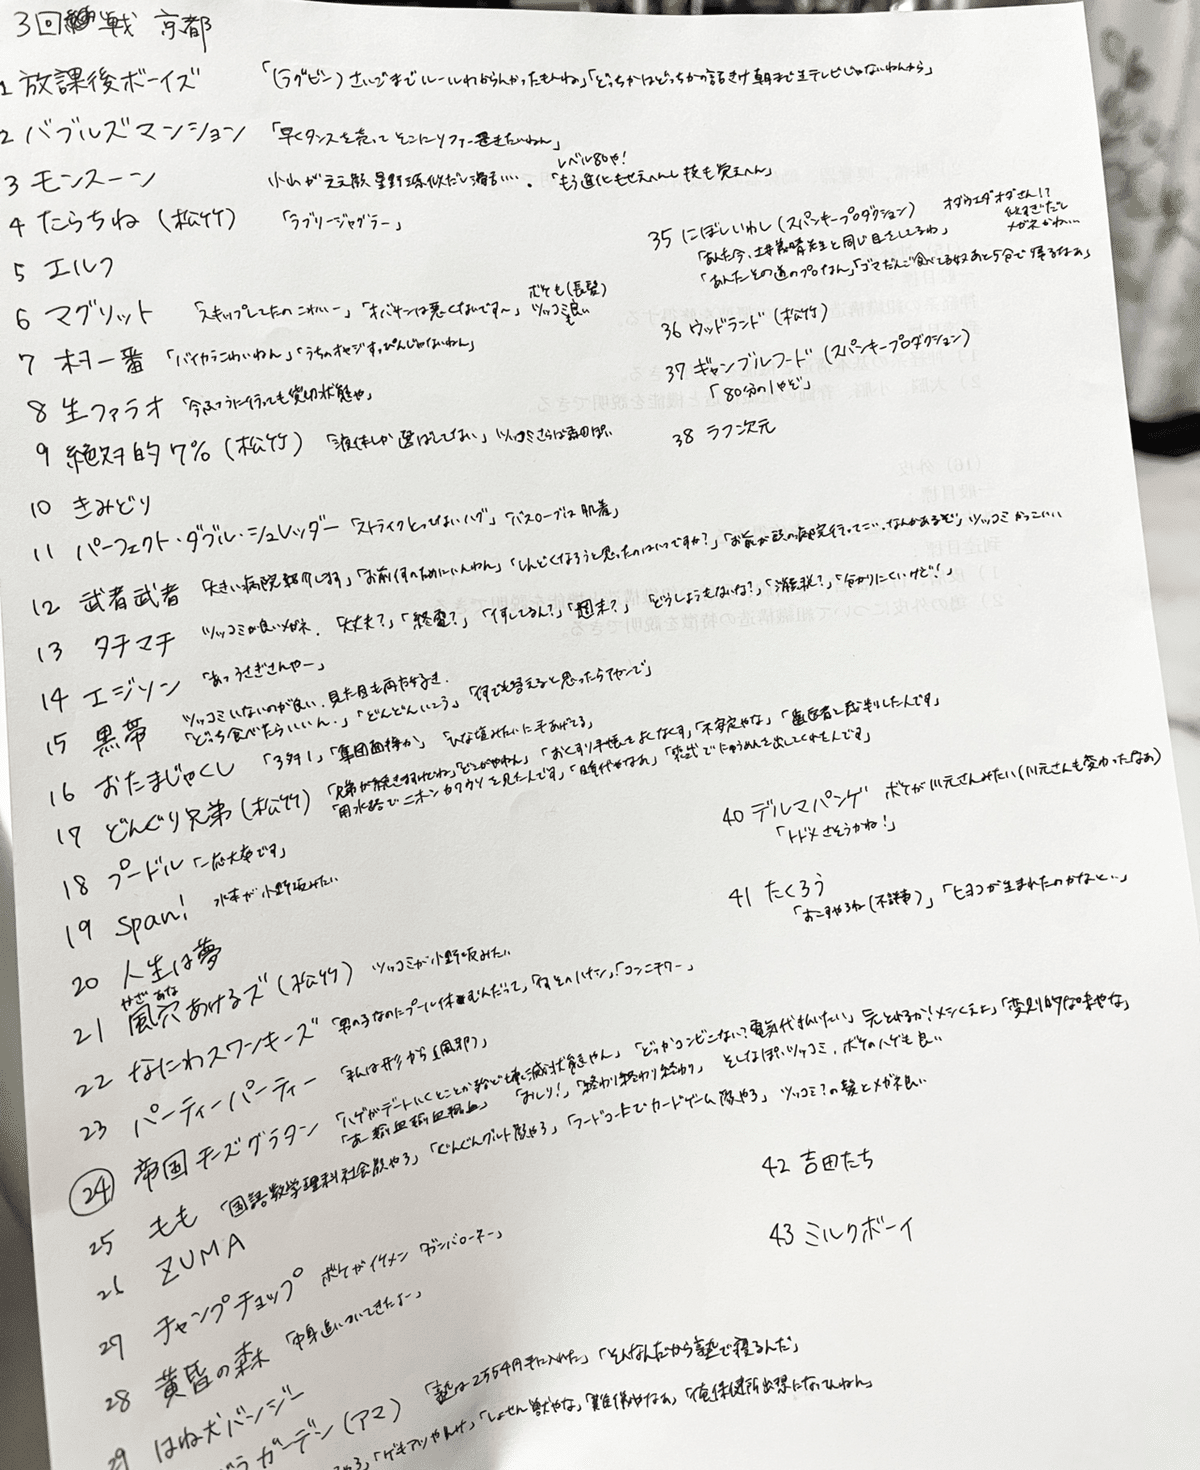 3回戦 京都
1 放課後ボーイズ 「(ラグビー)さいごまでルールわからんかったもんね」「どっちかはどっちかの話きけ 朝まで生テレビじゃないねんから」
2 バブルズマンション 「早くタンスを売って そこにソファー置きたいねん」
3 モンスーン 小山がええ 星野源似だし 滑舌…. 「もう進化もせえへんし 技も覚えへん」
レベル80や!
4 たらちね (松竹) 「ラブリージャグラー」
5 エルフ
6 マグリット 「スキップしてたのこわいー」「オバサンは悪くないです〜」 ボケも(長髪) ツッコミも良い
7 木ヨ一番 「バイカラこわいねん」「うちのオヤジすっぴんじゃないねん」
8 生ファラオ 「今ふつうに行っても貸切状態や」
9 絶対的7% (松竹) 「液体しか運ばしてない」
10 きみどり
11 パーフェクト・ダブル・シュレッダー 「ストライクとってないハグ」「バスローブは肌着」
12 武者武者 「大きい病院紹介します」「お前何のためにいんねん」「しんどくなろうと思ったのはいつですか?」「お前が頭の病院行ってこい、なんかあるぞ」 ツッコミかっこいい
13 タチマチ ツッコミが良いメガネ. 「大丈夫?」「終電?」「何してるん?」「週末?」「どうしようもないな?」「潜在?」「分かりにくいけど!」
14 エジソン 「あっうさぎさんやー」
15 黒帯 ツッコミいないのが良い. 見た目も両方好き.
「どっち食べたらいいん.」「どんどんいこう」「何でも答えると思ったらアカンで」
16 おたまじゃくし 「3対1」「集団面接か」「ひな壇みたいに手あげてる」
17 どんぐり兄弟 (松竹) 「兄弟が続きますけどね」「どこがやねん」「おくすり手帳をよくなくす」「不安定やな」「歯医者と裁判したんです」
「用水路でニホンカワウソを見たんです」「時代やなぁ」「葬式でにゅうめんを出してくれたんです」
18 プードル 「一応大卒です」
19 span! 水本が小野坂みたい
20 人生は夢
21 風穴あけるズ (松竹) ツッコミが小野坂みたい
かざ あな
22 なにわスワンキーズ 「男の子なのにプール休むんだって」「何そのハナシ」「コンニチワー」
23 パーティーパーティー 「私は形から(風邪)」
24 帝国チーズグラタン 「ハゲがデートいくとことか殆ど壊滅状態やん」「どっかコンビニない?電気代払いたい」「元とれるか!メシくえよ」「変則的な味やな」
「おー輸血輸血輸血」「おしり!」「終わり終わり終わり」 そしなぽいツッコミ. ボケのハゲも良い
25 もも 「国語数学理科社会顔やろ」「ぐんぐんグルト顔やろ」「フードコートでカードゲーム顔やろ」 ツッコミ?の髪とメガネ良い
26 ZUMA
27 チャンプチョップ ボケがイケメン ダンバローネー」
28 黄昏の森 「中身追いついてきたよー」
29 はね犬バンジー
ガーデン (アマ) 「塾は2万54円手に入れた」「そんなんだから塾で寝るんだ」
「ゲキアツやんけ」「しょせん獣やな」「難儀やなぁ」「俺保健所出禁になってんねん」
35 にぼしいわし (スパンキープロダクション) オダウエダオダさん!? 似すぎだし メガネかわ…
「あんた今、土井善晴先生と同じ目をしてるわ」
「あんたその道のプロなん」「ゴマだんご食べてる奴あと5分で帰るなぁ」
36 ウッドランド (松竹)
37 ギャンブルフード (スパンキープロダクション)
「80分の1やぞ」
38 ラフ次元
40 デルマパンゲ ボケが川元さんみたい(川元さんも変わったなぁ)
「トドメさそうかね!」
41 たくろう
「おこすやろね(不詳事)」「ヒヨコが生まれたのかなと..」
42 吉田たち
43 ミルクボーイ